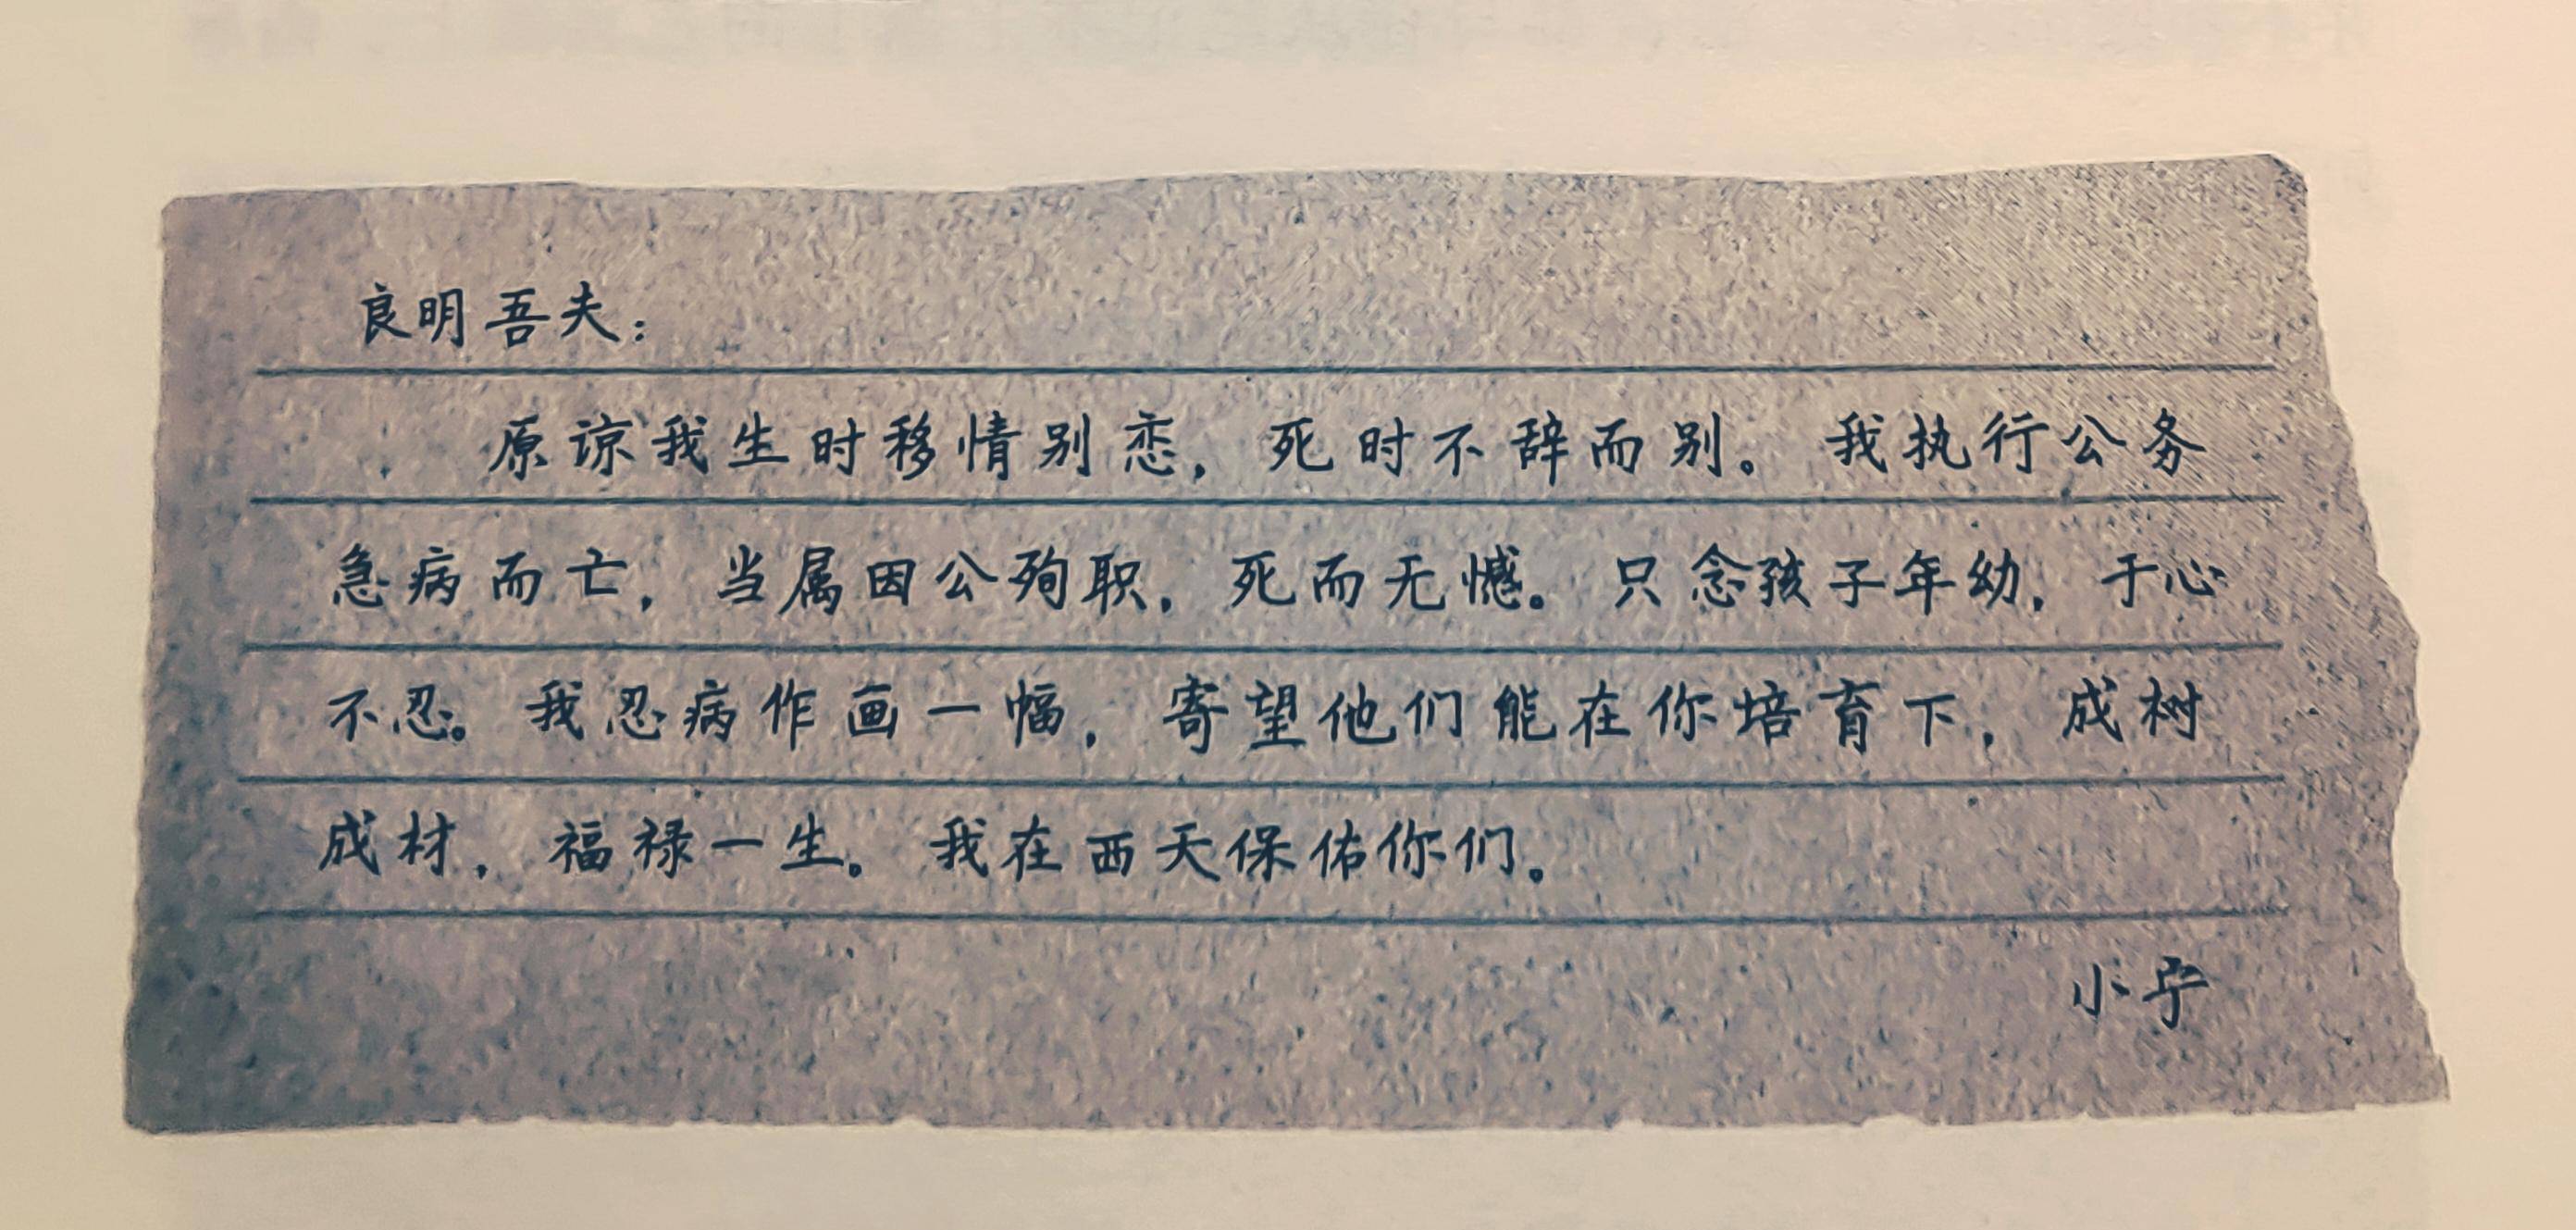 良明吾夫：
原谅我生时移情别恋，死时不辞而别。我执行公务
急病而亡，当属因公殉职，死而无憾。只念孩子年幼，于心
不忍。我忍病作画一幅，寄望他们能在你培育下，成树
成材，福禄一生。我在西天保佑你们。
小宁